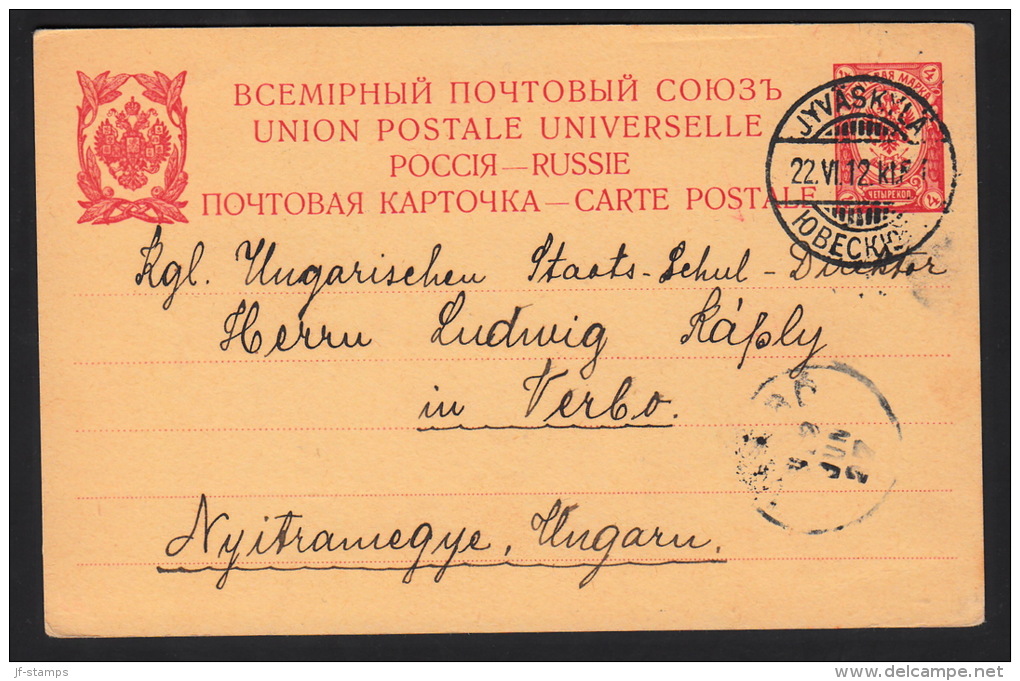 ВСЕМІРНЫЙ ПОЧТОВЫЙ СОЮЗЪ
UNION POSTALE UNIVERSELLE
РОССІЯ—RUSSIE
ПОЧТОВАЯ КАРТОЧКА—CARTE POSTALE
4 МАРКА 4
ЧЕТЫРЕ КОП. 4
JYVÄSKYLÄ
22.VI.12
ЮВЕСКЮ
Kgl. Ungarischen Staats-Schul-Direktor
Herrn Ludwig Káply
in Verbo.
Nyitramegye, Ungarn.
JUN
jf-stamps
www.delcampe.net